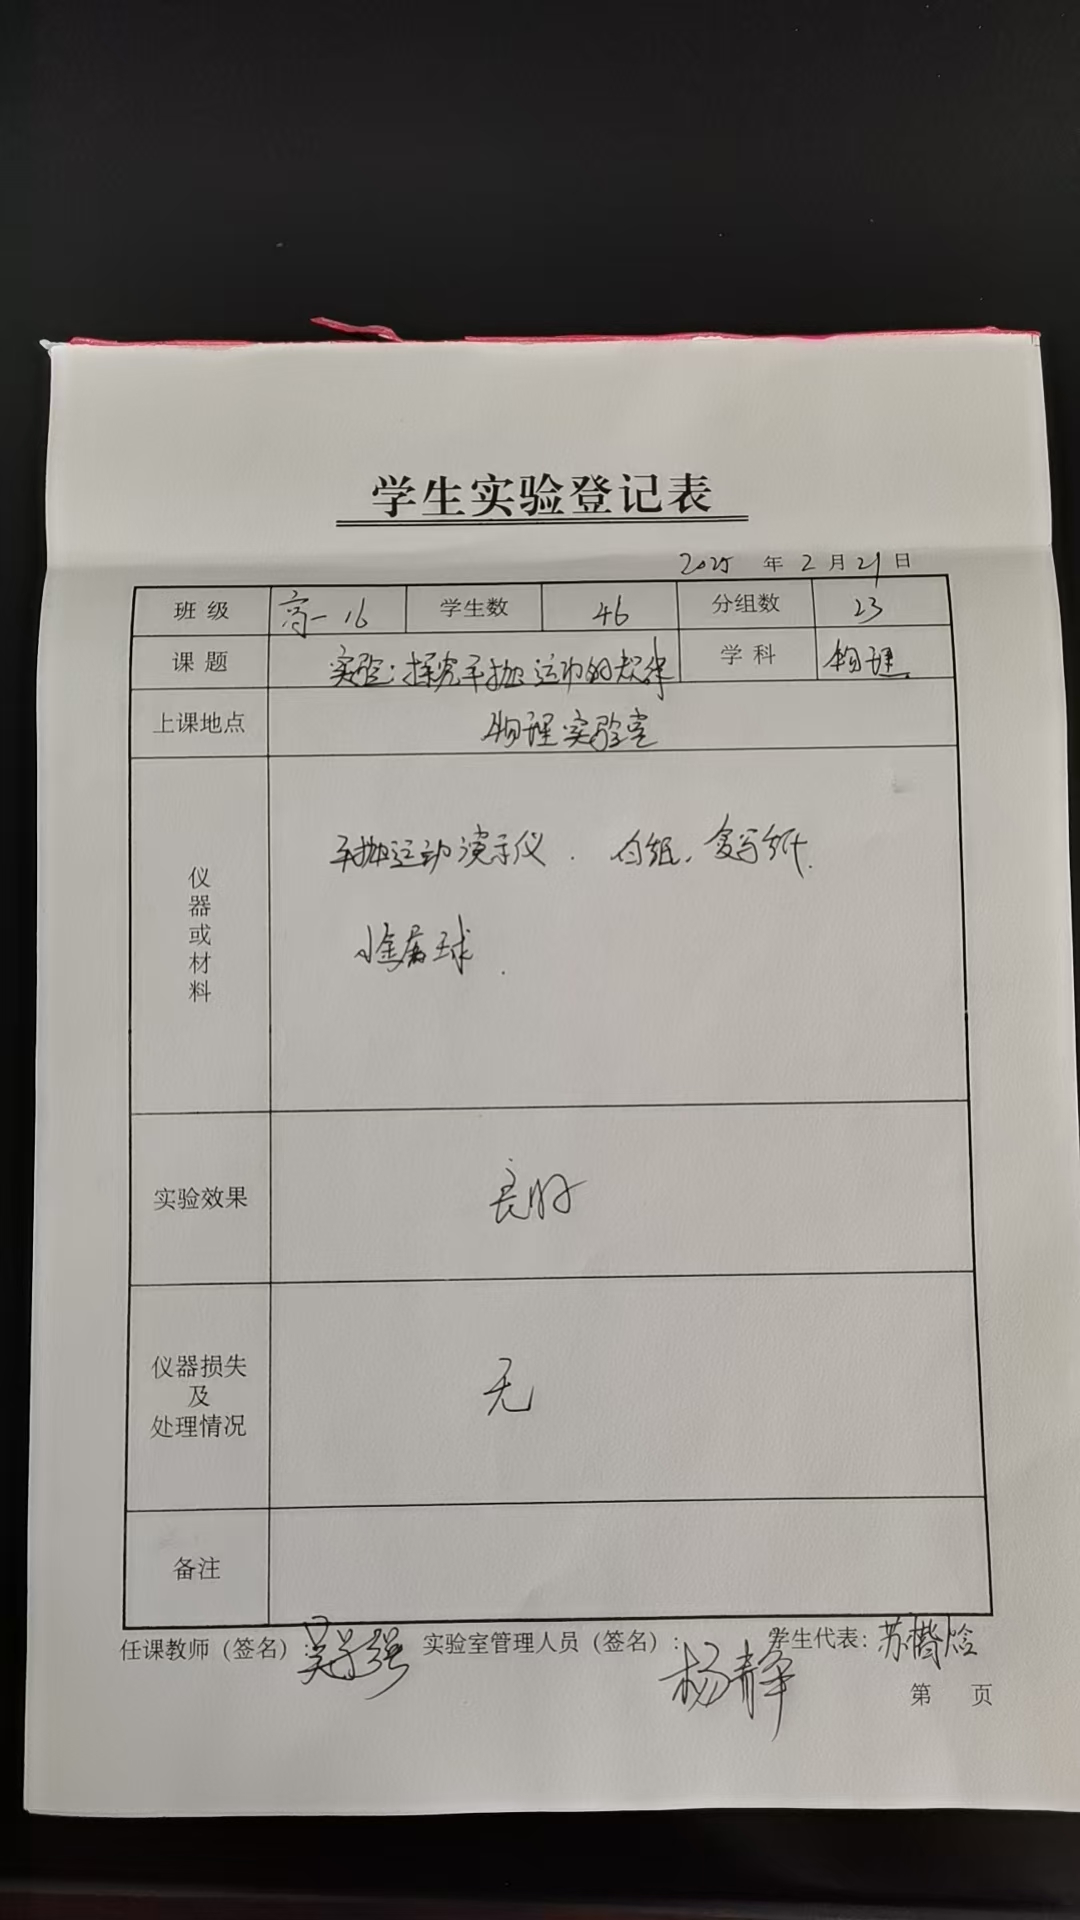 学生实验登记表
2025 年 2 月 21 日
班级 高一16 学生数 46 分组数 23
课题 实验:探究平抛运动的规律 学科 物理
上课地点 物理实验室
仪器或材料 平抛运动演示仪. 白纸, 复写纸.
小金属球.
实验效果 良好
仪器损失及处理情况 无
备注
任课教师(签名): 实验室管理人员(签名): 杨静 学生代表: 苏
第 页